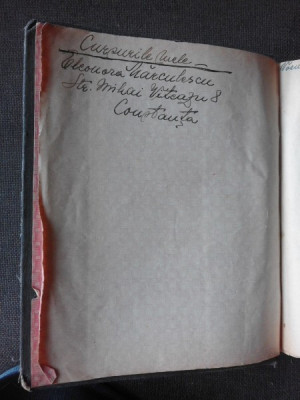 Cursurile mele
Eleonora Mărculescu
Str. Mihai Viteazu 8
Constanța